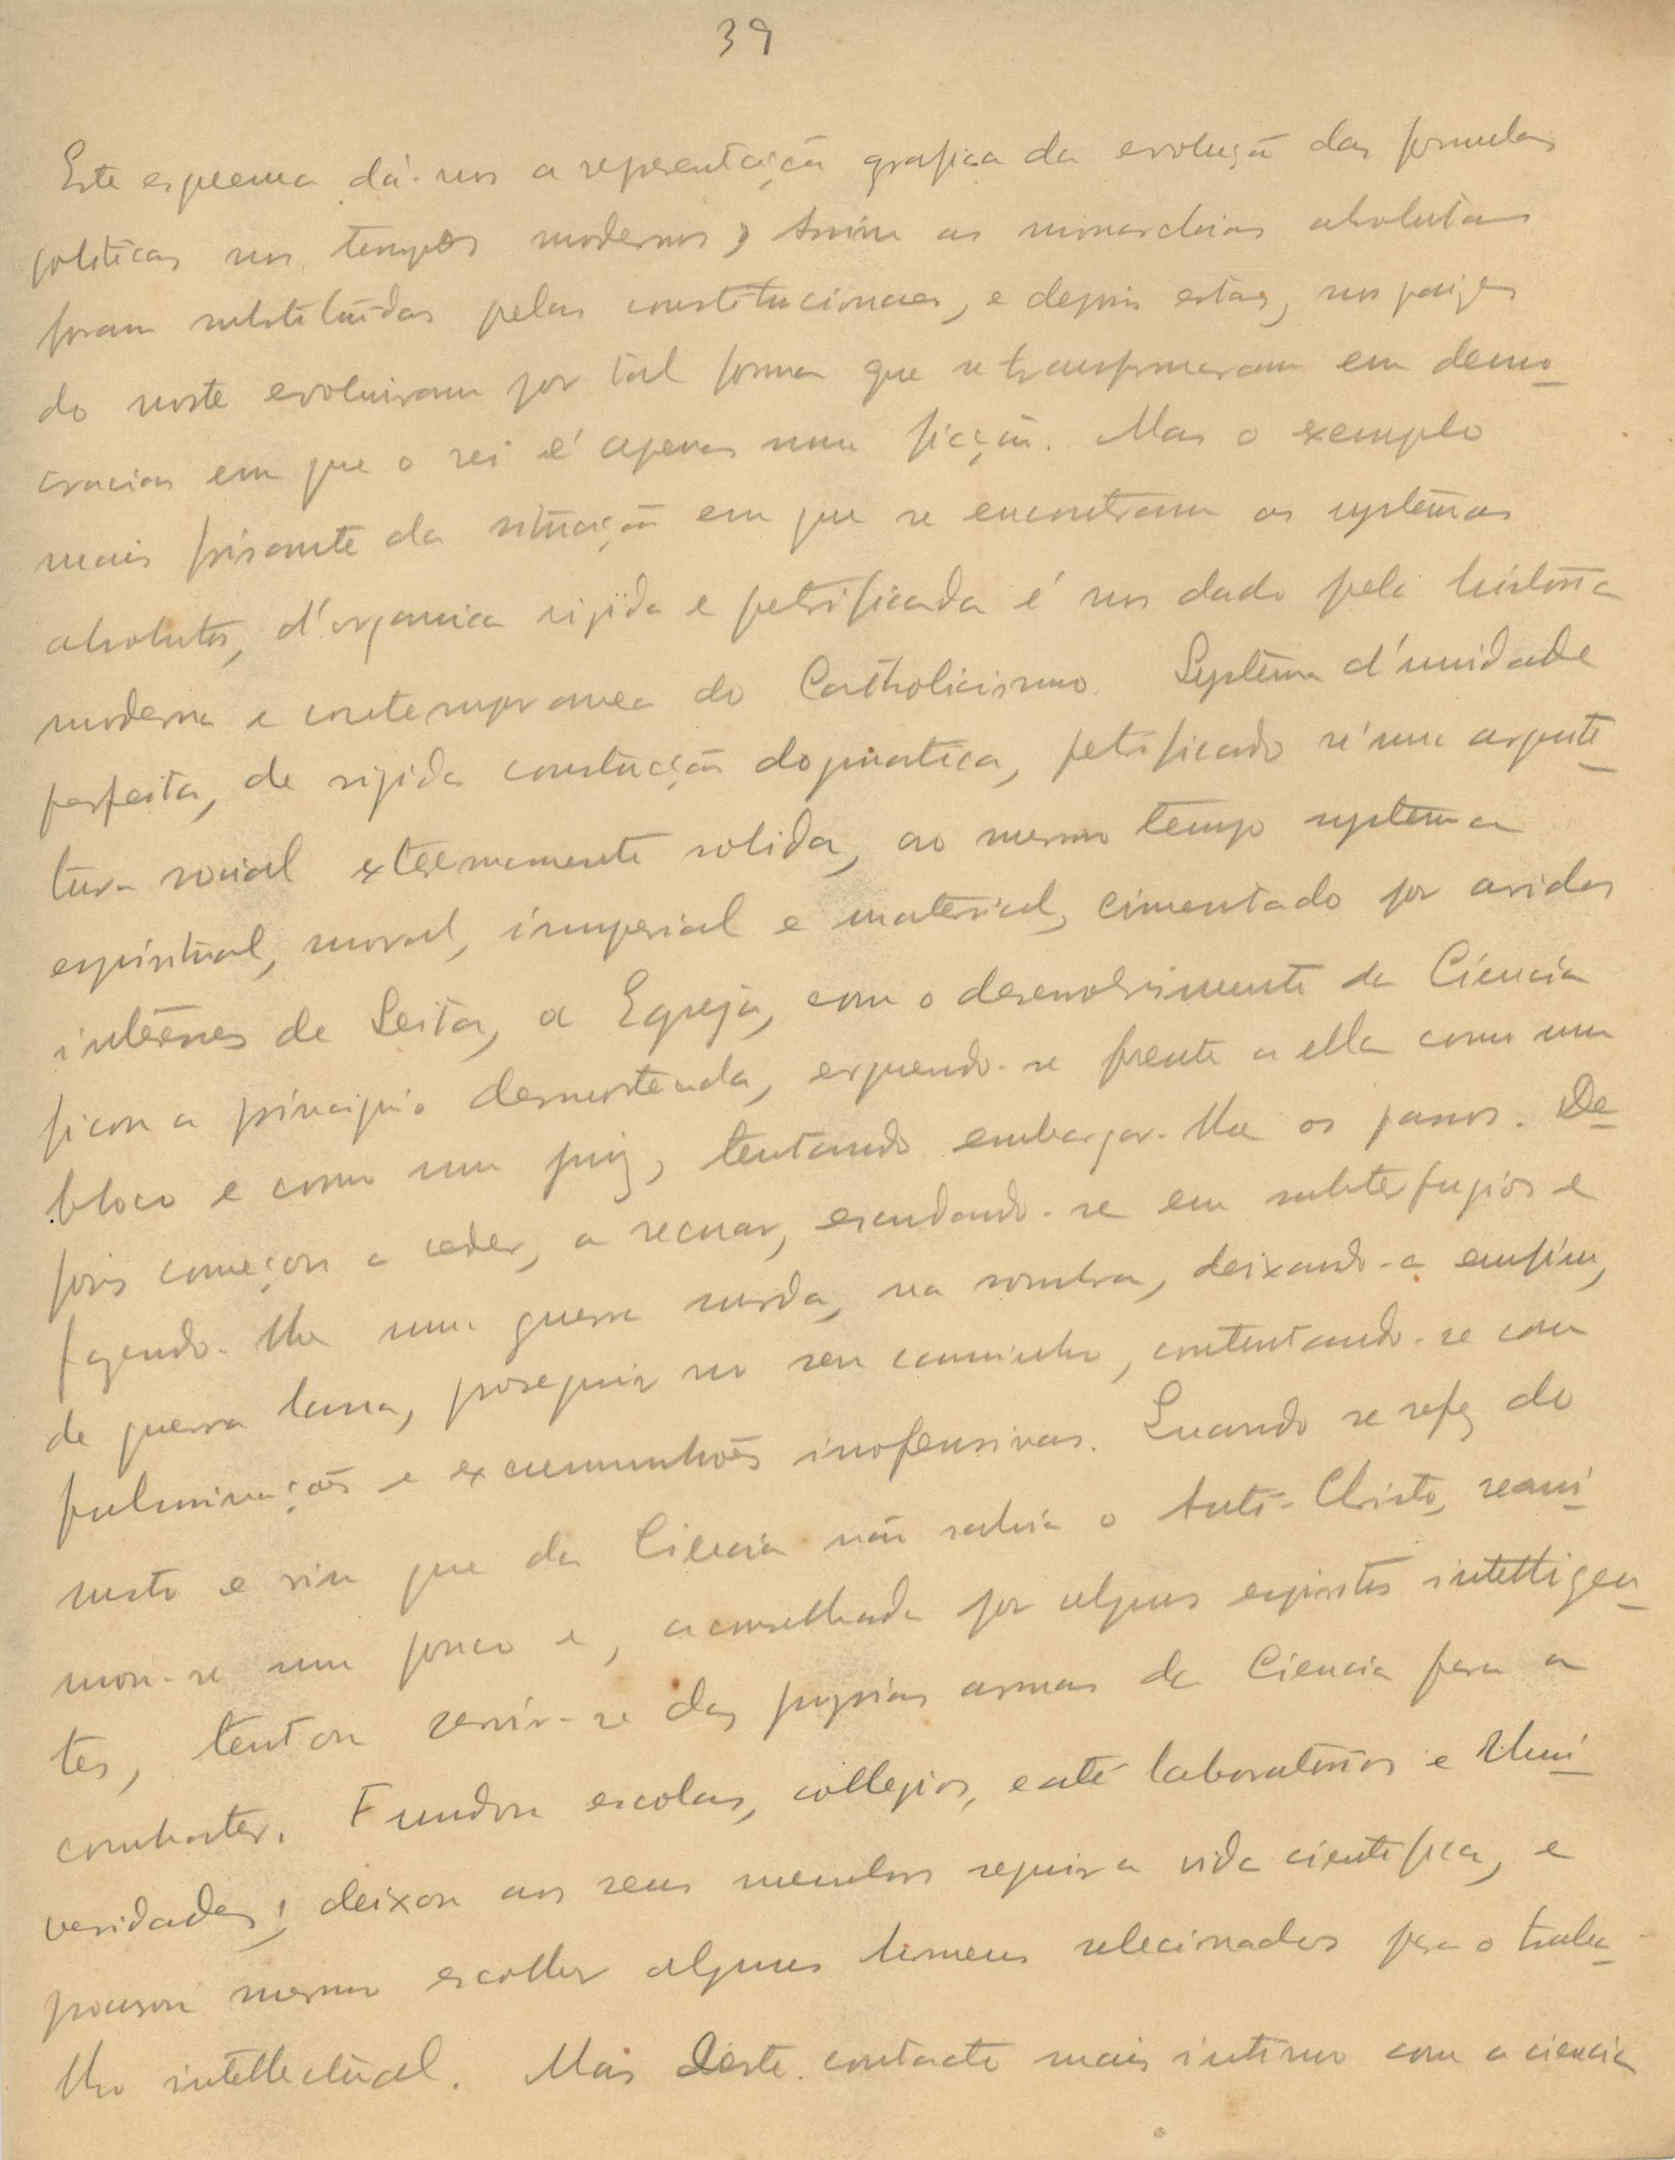 39
Este esquema dá-nos a representação grafica da evolução das formulas
politicas nos tempos modernos; Assim as monarchias absolutas
foram substituidas pelas constitucionaes, e depois estas, nos paizes
do norte evoluiram por tal forma que se transformaram em demo
cracias em que o rei é apenas uma ficção. Mas o exemplo
mais frisante da situação em que se encontram os systemas
absolutos, d'organica rigida e petrificada é nos dado pela historia
moderna e contemporanea do Catholicismo. Systema d'unidade
perfeita, de rigida construcção dogmatica, petrificado n'uma arquite
tura social extremamente solida, ao mesmo tempo systema
espiritual, moral, imperial e material, cimentado por avidos
interesses de Seita, a Egreja, com o desenvolvimento da Ciencia
ficou a principio desnorteada, erguendo-se frente a ella como um
bloco e como um juiz, tentando embargar-lhe os passos. De
pois começou a ceder, a recuar, escudando-se em subterfugios e
fazendo-lhe uma guerra surda, na sombra, deixando-a emfim,
de guerra lassa, proseguir no seu caminho, contentando-se com
fulminações e excumunhões inofensivas. Quando se refez do
susto e viu que da Ciencia não sahia o Anti-Christo, reani
mou-se um pouco e, aconselhada por alguns espiritos intelligen
tes, tentou servir-se das proprias armas da Ciencia para a
combater. Fundou escolas, collegios, e até laboratorios e Uni
versidades; deixou aos seus membros seguir a vida cientifica, e
procurou mesmo escolher alguns homens selecionados para o traba
lho intellectual. Mas deste contacto mais intimo com a ciencia